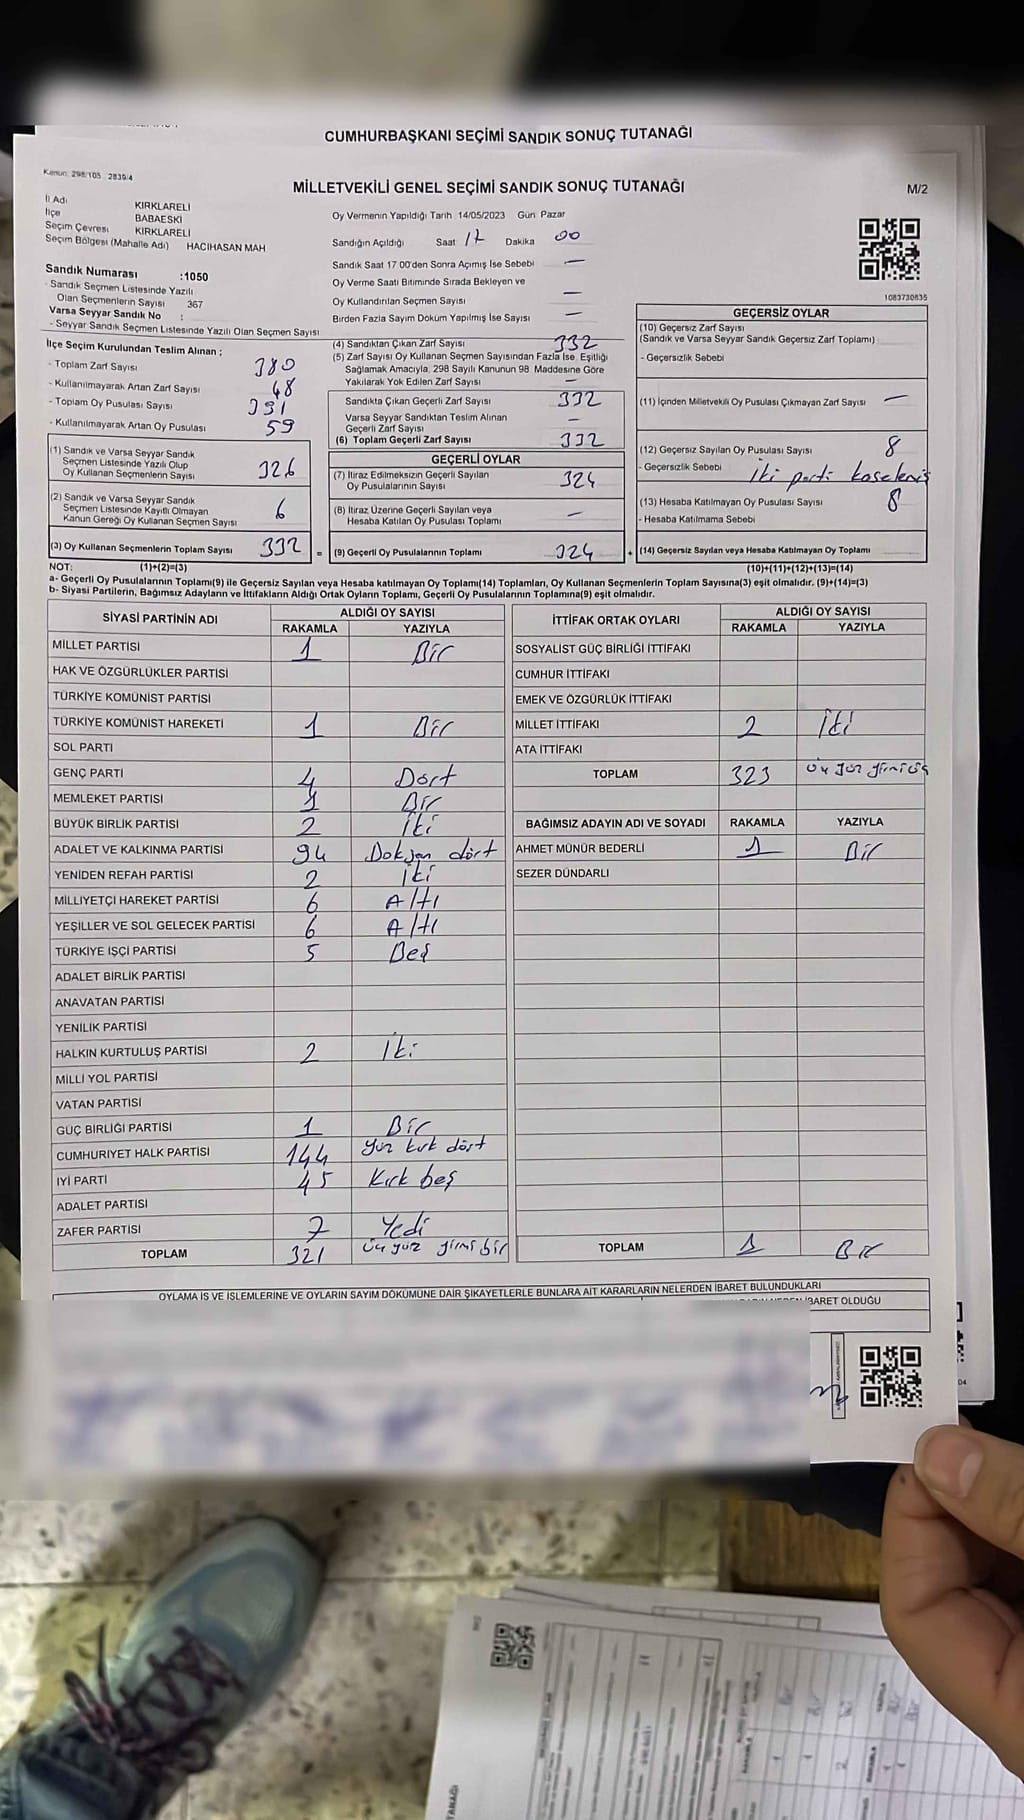 CUMHURBAŞKANI SEÇİMİ SANDIK SONUÇ TUTANAĞI
Kanun: 298/105 2839/4
MİLLETVEKİLİ GENEL SEÇİMİ SANDIK SONUÇ TUTANAĞI
M/2
İl Adı KIRKLARELİ
İlçe BABAESKİ
Seçim Çevresi KIRKLARELİ
Seçim Bölgesi (Mahalle Adı) HACIHASAN MAH
Sandık Numarası :1050
- Sandık Seçmen Listesinde Yazılı
Olan Seçmenlerin Sayısı 367
Varsa Seyyar Sandık No :
- Seyyar Sandık Seçmen Listesinde Yazılı Olan Seçmen Sayısı
Oy Vermenin Yapıldığı Tarih 14/05/2023 Gün Pazar
Sandığın Açıldığı Saat 17 Dakika 00
Sandık Saat 17 00'den Sonra Açımış İse Sebebi —
Oy Verme Saati Bitiminde Sırada Bekleyen ve
Oy Kullandırılan Seçmen Sayısı —
Birden Fazla Sayım Döküm Yapılmış İse Sayısı —
1083730835
İlçe Seçim Kurulundan Teslim Alınan ;
- Toplam Zarf Sayısı 380
- Kullanılmayarak Artan Zarf Sayısı 48
- Toplam Oy Pusulası Sayısı 391
- Kullanılmayarak Artan Oy Pusulası 59
(1) Sandık ve Varsa Seyyar Sandık
Seçmen Listesinde Yazılı Olup
Oy Kullanan Seçmenlerin Sayısı 326
(2) Sandık ve Varsa Seyyar Sandık
Seçmen Listesinde Kayıtlı Olmayan
Kanun Gereği Oy Kullanan Seçmen Sayısı 6
(3) Oy Kullanan Seçmenlerin Toplam Sayısı 332 =
(4) Sandıktan Çıkan Zarf Sayısı 332
(5) Zarf Sayısı Oy Kullanan Seçmen Sayısından Fazla İse, Eşitliği
Sağlamak Amacıyla, 298 Sayılı Kanunun 98. Maddesine Göre
Yakılarak Yok Edilen Zarf Sayısı —
Sandıkta Çıkan Geçerli Zarf Sayısı 332
Varsa Seyyar Sandıktan Teslim Alınan
Geçerli Zarf Sayısı —
(6) Toplam Geçerli Zarf Sayısı 332
GEÇERLİ OYLAR
(7) İtiraz Edilmeksizin Geçerli Sayılan
Oy Pusulalarının Sayısı 324
(8) İtiraz Üzerine Geçerli Sayılan veya
Hesaba Katılan Oy Pusulası Toplamı —
(9) Geçerli Oy Pusulalarının Toplamı 324 +
GEÇERSİZ OYLAR
(10) Geçersiz Zarf Sayısı
(Sandık ve Varsa Seyyar Sandık Geçersiz Zarf Toplamı)
- Geçersizlik Sebebi
(11) İçinden Milletvekili Oy Pusulası Çıkmayan Zarf Sayısı —
(12) Geçersiz Sayılan Oy Pusulası Sayısı 8
- Geçersizlik Sebebi İki parti kaşelemiş
(13) Hesaba Katılmayan Oy Pusulası Sayısı 8
- Hesaba Katılmama Sebebi
(14) Geçersiz Sayılan veya Hesaba Katılmayan Oy Toplamı
NOT: (1)+(2)=(3) (10)+(11)+(12)+(13)=(14)
a- Geçerli Oy Pusulalarının Toplamı(9) ile Geçersiz Sayılan veya Hesaba katılmayan Oy Toplamı(14) Toplamları, Oy Kullanan Seçmenlerin Toplam Sayısına(3) eşit olmalıdır. (9)+(14)=(3)
b- Siyasi Partilerin, Bağımsız Adayların ve İttifakların Aldığı Ortak Oyların Toplamı, Geçerli Oy Pusulalarının Toplamına(9) eşit olmalıdır.
SİYASİ PARTİNİN ADI ALDIĞI OY SAYISI
RAKAMLA YAZIYLA
MİLLET PARTİSİ 1 Bir
HAK VE ÖZGÜRLÜKLER PARTİSİ
TÜRKİYE KOMÜNİST PARTİSİ
TÜRKİYE KOMÜNİST HAREKETİ 1 Bir
SOL PARTİ
GENÇ PARTİ 4 Dört
MEMLEKET PARTİSİ 1 Bir
BÜYÜK BİRLİK PARTİSİ 2 İki
ADALET VE KALKINMA PARTİSİ 94 Doksan dört
YENİDEN REFAH PARTİSİ 2 İki
MİLLİYETÇİ HAREKET PARTİSİ 6 Altı
YEŞİLLER VE SOL GELECEK PARTİSİ 6 Altı
TÜRKİYE İŞÇİ PARTİSİ 5 Beş
ADALET BİRLİK PARTİSİ
ANAVATAN PARTİSİ
YENİLİK PARTİSİ
HALKIN KURTULUŞ PARTİSİ 2 İki
MİLLİ YOL PARTİSİ
VATAN PARTİSİ
GÜÇ BİRLİĞİ PARTİSİ 1 Bir
CUMHURİYET HALK PARTİSİ 144 Yüz kırk dört
İYİ PARTİ 45 Kırk beş
ADALET PARTİSİ
ZAFER PARTİSİ 7 Yedi
TOPLAM 321 üç yüz yirmi bir
İTTİFAK ORTAK OYLARI ALDIĞI OY SAYISI
RAKAMLA YAZIYLA
SOSYALİST GÜÇ BİRLİĞİ İTTİFAKI
CUMHUR İTTİFAKI
EMEK VE ÖZGÜRLÜK İTTİFAKI
MİLLET İTTİFAKI 2 İki
ATA İTTİFAKI
TOPLAM 323 üç yüz yirmi üç
BAĞIMSIZ ADAYIN ADI VE SOYADI RAKAMLA YAZIYLA
AHMET MÜNÜR BEDERLİ 1 Bir
SEZER DÜNDARLI
TOPLAM 1 Bir
OYLAMA İŞ VE İŞLEMLERİNE VE OYLARIN SAYIM DÖKÜMÜNE DAİR ŞİKAYETLERLE BUNLARA AİT KARARLARIN NELERDEN İBARET BULUNDUKLARI
İBARET OLDUĞU